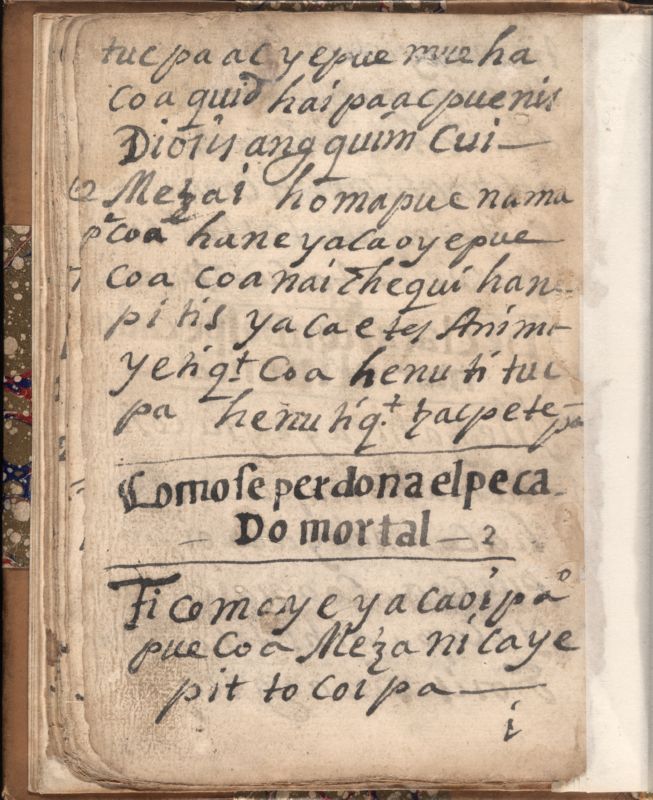 tucpaacyepue mueha
coa quid hai paacpuenis
Diosis angquim Cui—
Mezai homapuc nama
coa haneyacaoyepue
coa coanai chequi han-
pitis yacaetes Anima
yetiqt coa henu ti tuc
pa henutiqt zacpete=
pa
Como se perdona el peca
— Do mortal — 2
Ti comoye yacaoipa°
pue coa Mezanicaye
pit to coipa—
i